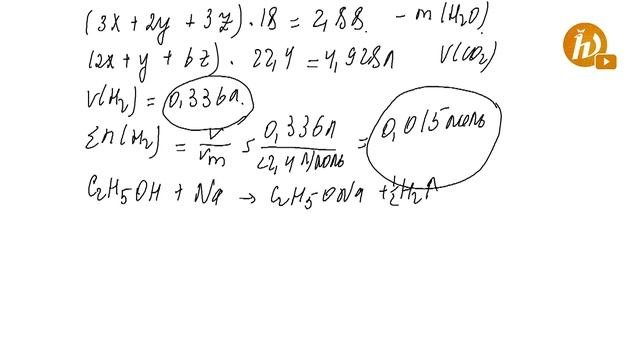 (3x + 2y + 3z) · 18 = 2,88. – m(H₂O)
(2x + y + 6z) · 22,4 = 4,928л V(CO₂)
V(H₂) = 0,336л.
Σn(H₂) = V/Vm = 0,336л/22,4л/моль = 0,015моль
C₂H₅OH + Na → C₂H₅ONa + ½H₂↑